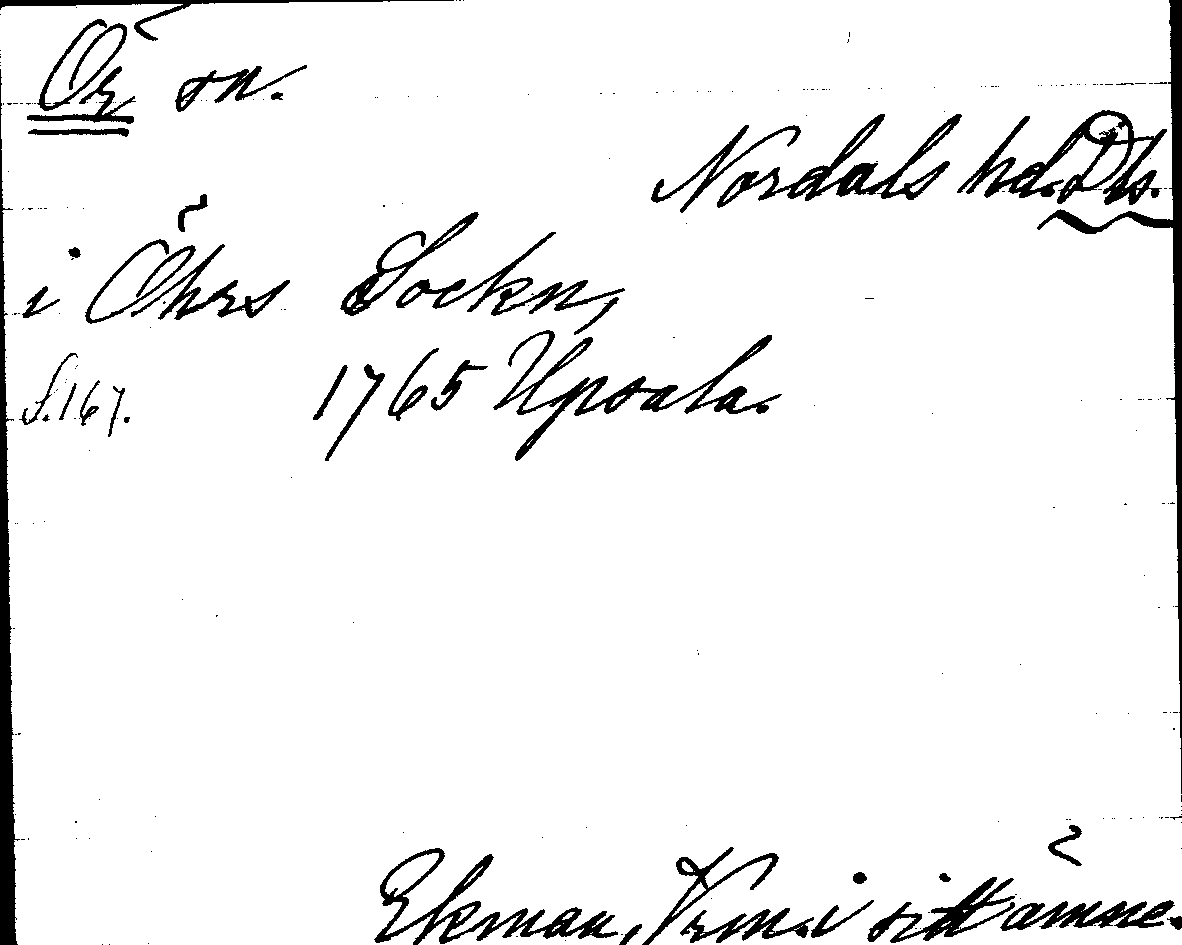 Ör sn.
Nordals hd. Dls.
i Öhrs Sockn,
S. 167. 1765 Upsala.
Ekman, Vrm. i sitt ämne.